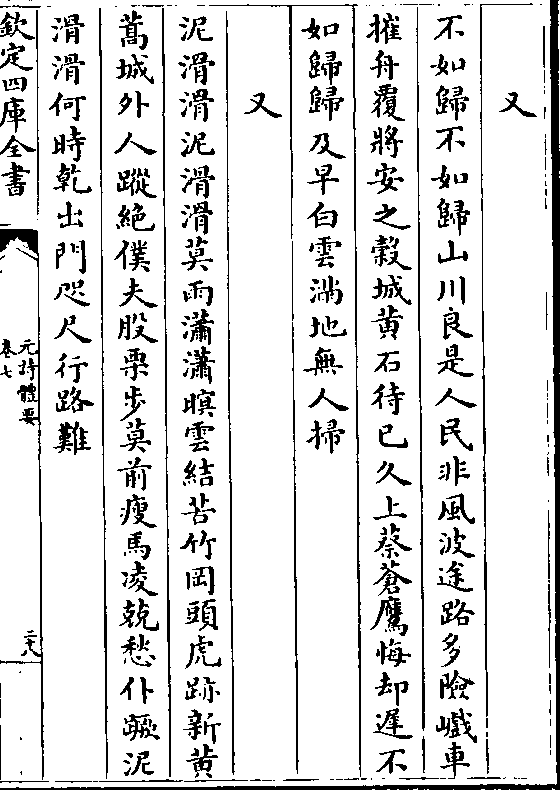 又
不如歸不如歸山川良是人民非風波途路多險巇車
摧舟覆將安之榖城黄石待已久上蔡蒼鷹悔却遲不
如歸歸及早白雲滿地無人掃
又
泥滑滑泥滑滑莫雨瀟瀟暝雲結苦竹岡頭虎跡新黄
蒿城外人蹤絶僕夫股栗步莫前瘦馬凌兢愁仆蹶泥
滑滑何時乾出門咫尺行路難
欽定四庫全書
元詩體要
卷七
二十八